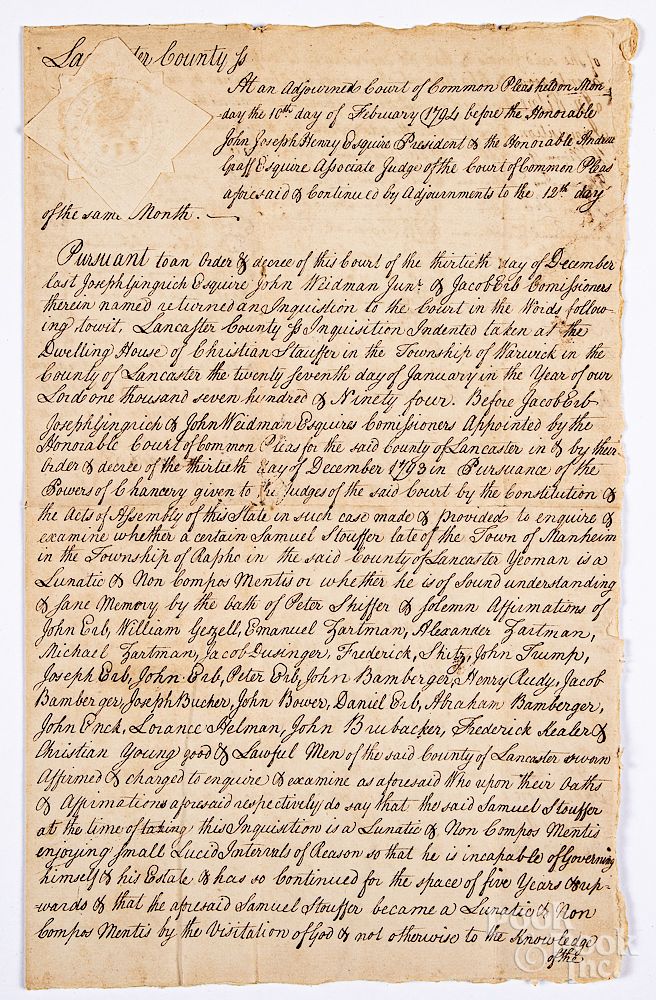 Lancaster County ss
At an Adjourned Court of Common Pleas held on Mon-
day the 10th day of February 1794 before the Honorable
John Joseph Henry Esquire President & the Honorable Andrew
Graff Esquire Associate Judge of the Court of Common Pleas
aforesaid & Continued by Adjournments to the 12th day
of the same Month.
Pursuant to an Order & decree of this Court of the thirtieth day of December
last Joseph Gingrich Esquire John Weidman Junr. & Jacob Erb Comissioners
therein named returned an Inquistion to the Court in the Words follow-
ing towit, Lancaster County ss Inquisition Indented taken at the
Dwelling House of Christian Stauffer in the Township of Warwick in the
County of Lancaster the twenty seventh day of January in the Year of our
Lord one thousand seven hundred & Ninety four. Before Jacob Erb
Joseph Gingrich & John Weidman Esquires Comissioners Appointed by the
Honorable Court of Common Pleas for the said County of Lancaster in & by their
Order & decree of the thirtieth day of December 1793 in Pursuance of the
Powers of Chancery given to the Judges of the said Court by the Constitution &
the Acts of Assembly of this State in such case made & provided to enquire &
examine whether a certain Samuel Stouffer late of the Town of Manheim
in the Township of Rapho in the said County of Lancaster Yeoman is a
Lunatic & Non Compos Mentis or whether he is of Sound understanding
& sane Memory by the oath of Peter Shiffer & solemn Affirmations of
John Erb, William Geszell, Emanuel Zartman, Alexander Zartman,
Michael Zartman, Jacob Dusinger, Frederick, Shitz, John Trump,
Joseph Erb, John Erb, Peter Erb, John Bamberger, Henry Rudy, Jacob
Bamberger, Joseph Bucher, John Bower, Daniel Erb, Abraham Bamberger,
John Enck, Lorance Helman, John Brubacker, Frederick Kealer &
Christian Young good & Lawful Men of the said County of Lancaster sworn
Affirmed & charged to enquire & examine as aforesaid Who upon their oaths
& Affirmations aforesaid respectively do say that the said Samuel Stouffer
at the time of taking this Inquisition is a Lunatic & Non Compos Mentis
enjoying Small Lucid Intervals of Reason so that he is incapable of Governing
himself & his Estate & has so Continued for the space of five Years & up-
wards & that he aforesaid Samuel Stouffer became a Lunatic & Non
Compos Mentis by the Visitation of God & not otherwise to the Knowledge
of the
Pook & Pook Inc.